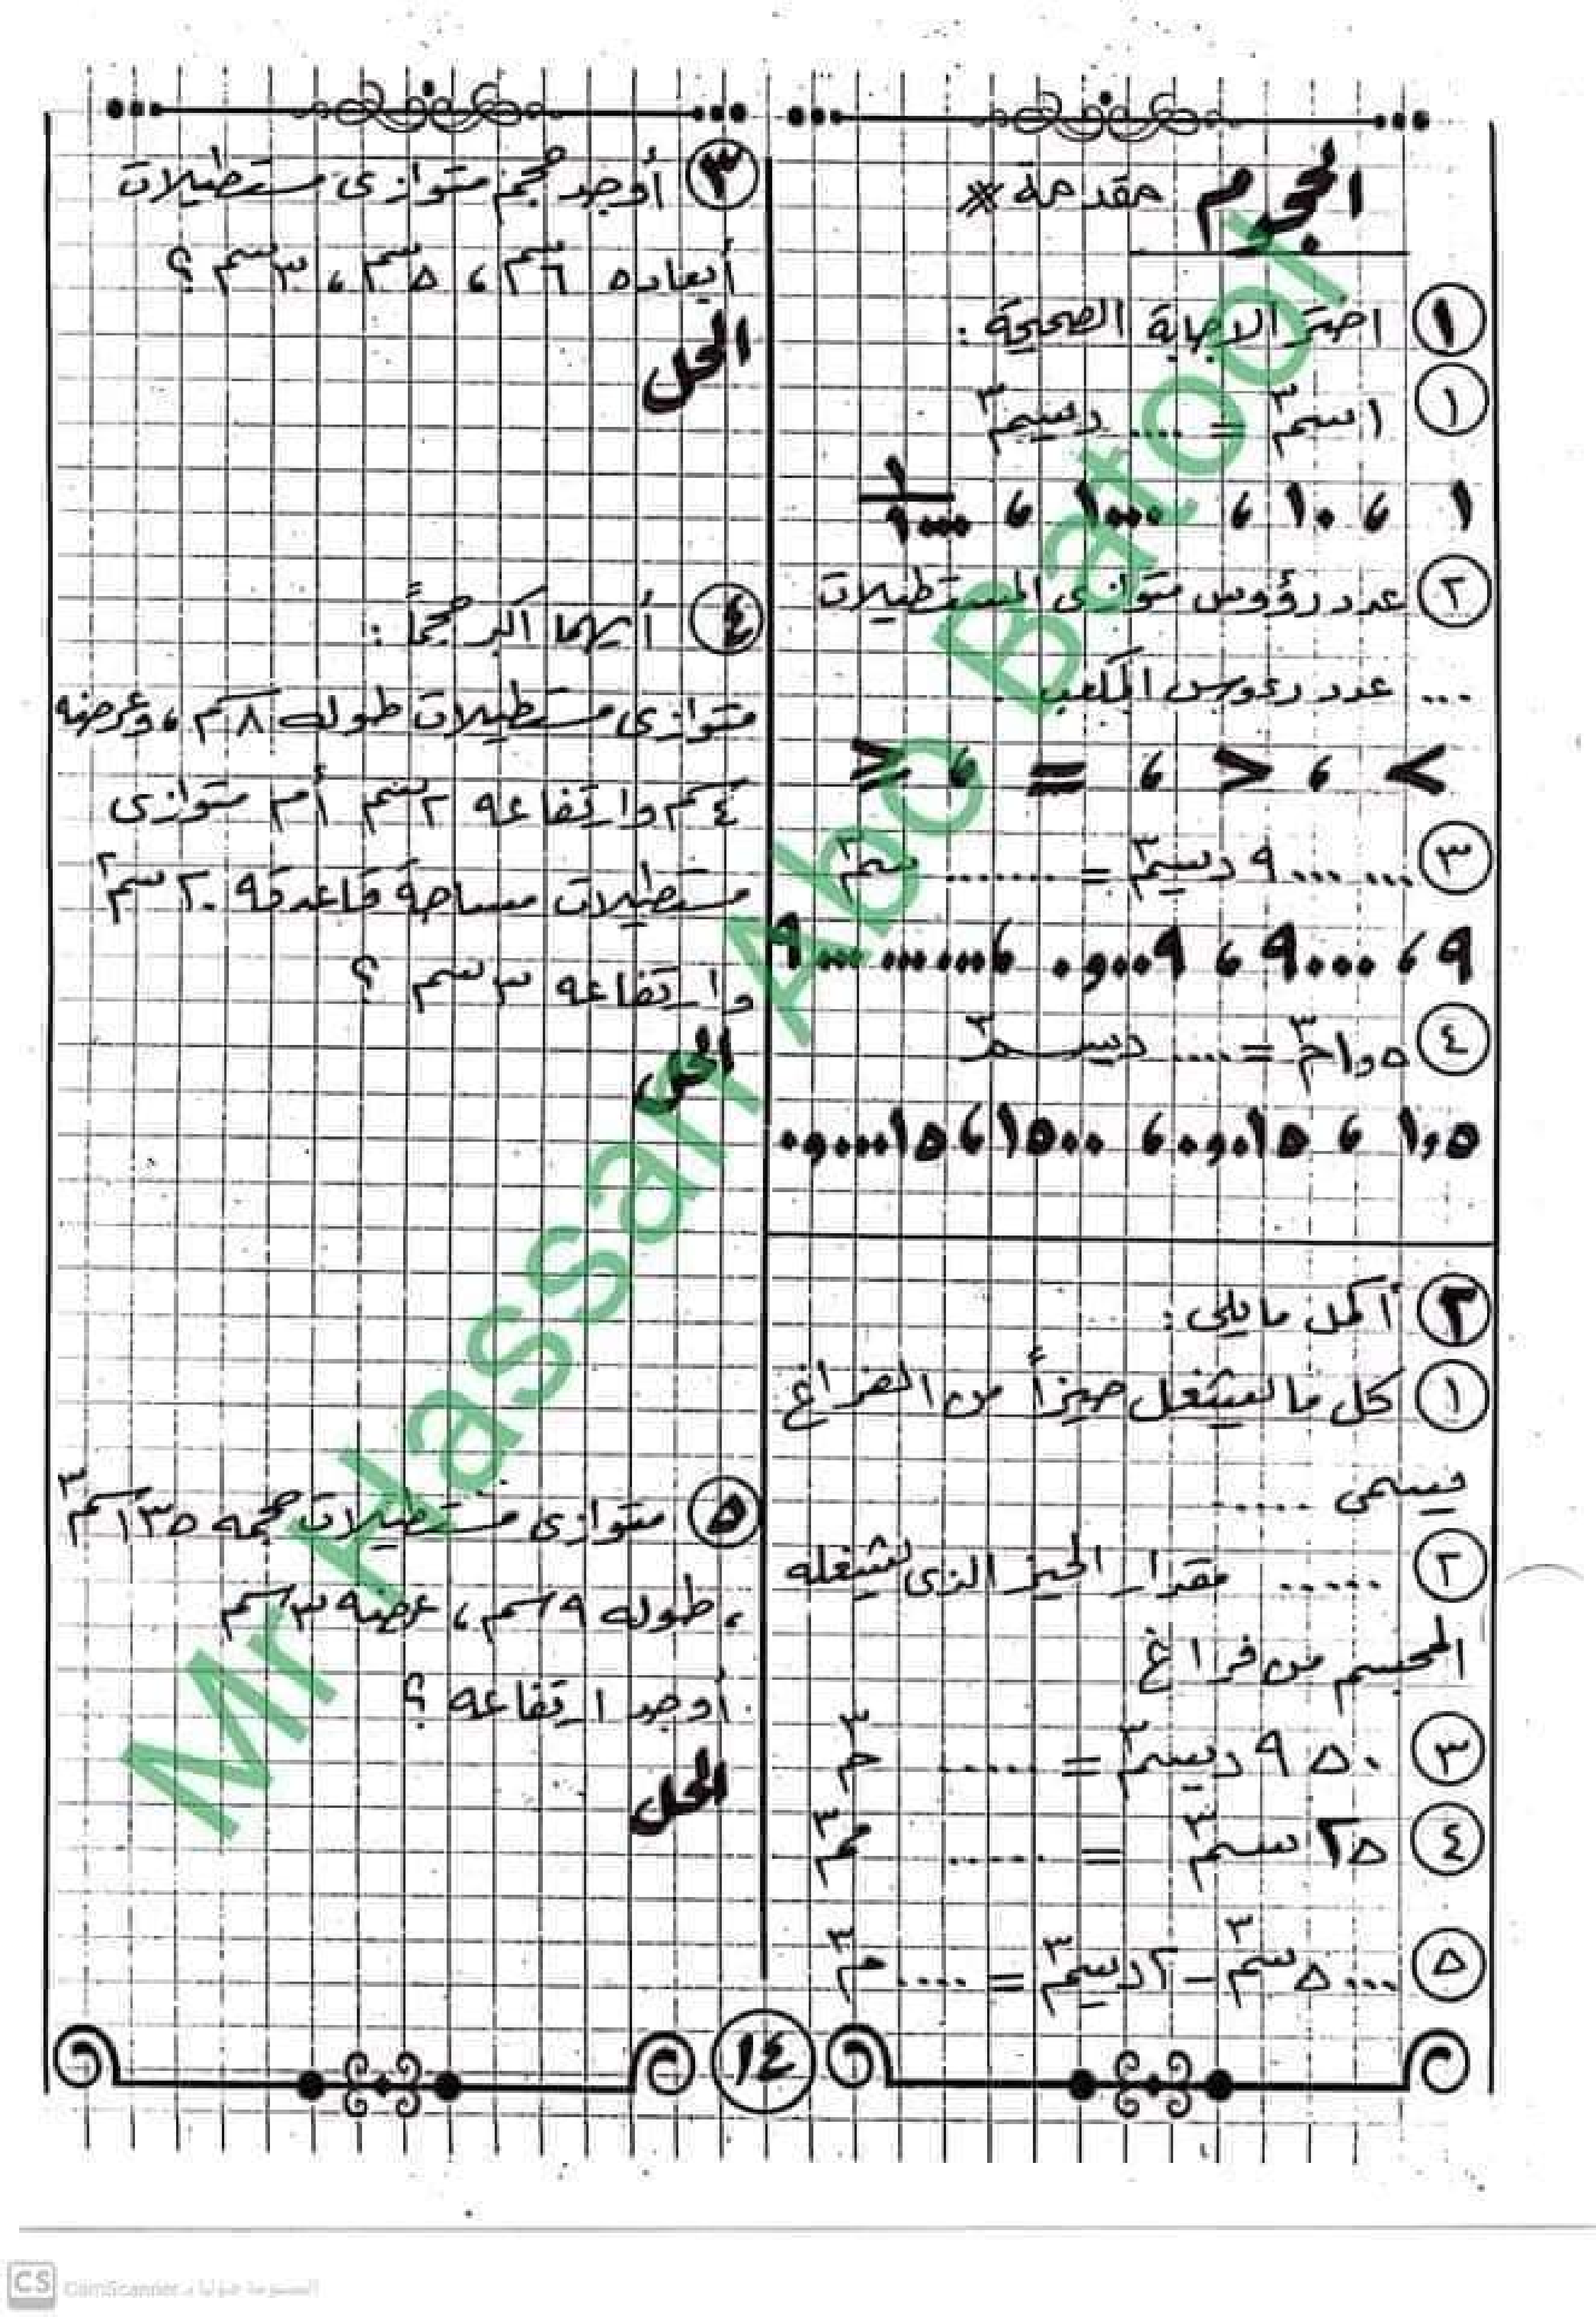 الحجوم مقدمة *
١ اختر الاجابة الصحيحة :
١ ١سم٣ = .... ديسم٣
١ ، ١٠ ، ١٠٠٠ ، ١/١٠٠٠
٢ عدد رؤوس متوازى المستطيلات
... عدد رءوس المكعب
< ، > ، = ، ≥
٣ ٩٠٠٠٠٠٠ ديسم٣ = ........ سم٣
٩ ، ٩٠٠٠ ، ٠٫٠٠٩ ، ٩٠٠٠٠٠٠٠٠٠
٤ ١٫٥م٣ = .... ديسم٣
١٫٥ ، ٠٫٠١٥ ، ١٥٠٠ ، ٠٫٠٠٠١٥
٢ أكمل مايلى :
١ كل ما يشغل حيزاً من الفراغ
يسمى .....
٢ ...... مقدار الحيز الذى يشغله
المجسم من فراغ
٣ ٩٥٠ ديسم٣ = ...... م٣
٤ ٢٥ سم٣ = ...... مم٣
٥ ٥٠٠٠سم٣ - ٢ديسم٣ = .... م٣
٣ أوجد حجم متوازى مستطيلات
أبعاده ٦سم ، ٥سم ، ٣سم ؟
الحل
٤ أيهما اكبر حجماً :
متوازى مستطيلات طوله ٨سم ، وعرضه
٤سم وارتفاعه ٢سم أم متوازى
مستطيلات مساحة قاعدته ٢٠سم٢
وارتفاعه ٣سم ؟
الحل
٥ متوازى مستطيلات حجمه ١٣٥سم٣
، طوله ٩سم ، عرضه ٣سم
أوجد ارتفاعه ؟
الحل
١٤
Mr Hassan Abo Batool
CS CamScanner الممسوحة ضوئيا بـ